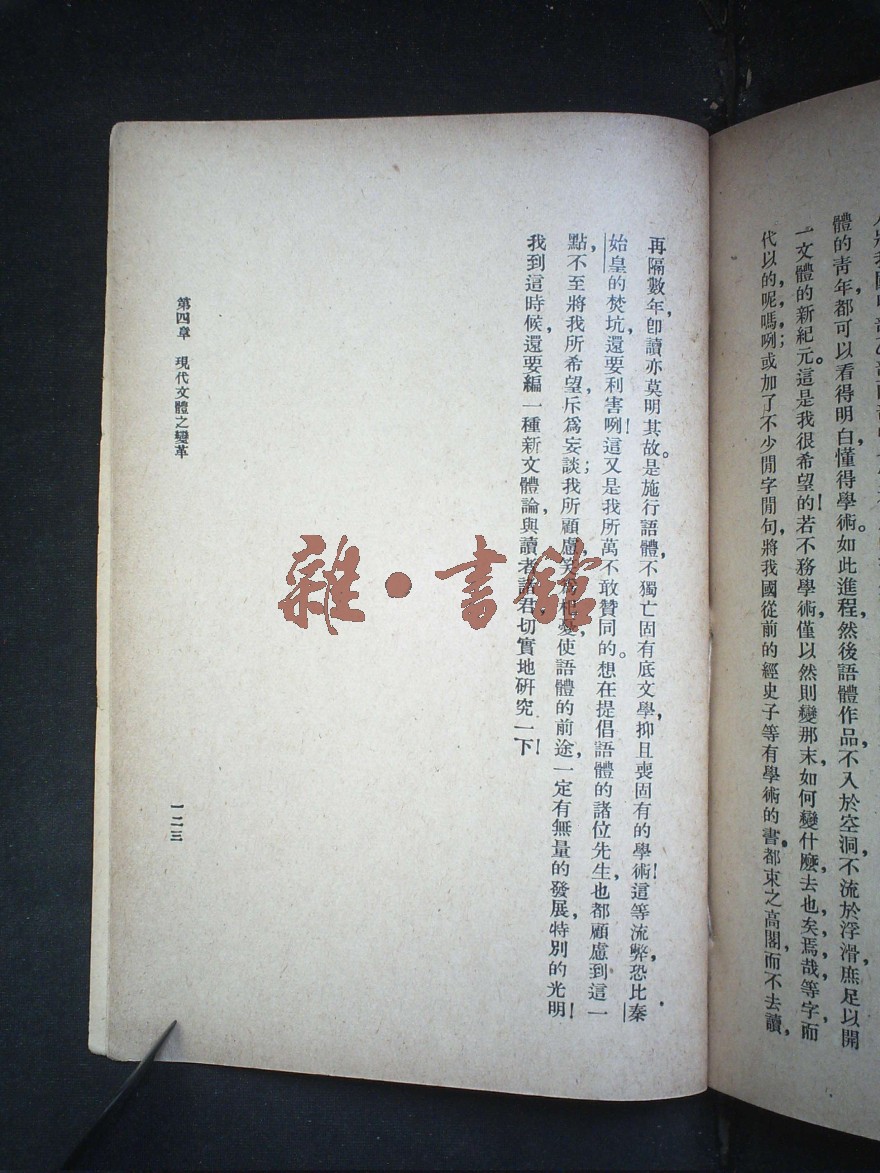 體的青年都可以看得明白懂得學術。如此進程,然後語體作品,不入於空洞,不流於浮滑,庶足以開
一文體的新紀元。這是我很希望的!若不務學術,僅以然則變那末,如何變什麽,去也,矣,焉,哉,等字,而
代以的,呢,嗎,咧;或加了不少閒字閒句,將我國從前的經史子等有學術的書,都束之高閣,而不去讀,
再隔數年,卽讀亦莫明其故。是施行語體,不獨亡固有底文學,抑且喪固有的學術!這等流弊,恐比秦
始皇的焚坑,還要利害咧!這又是我所萬不敢贊同的。想在提倡語體的諸位先生,也都顧慮到這一
點,不至將我所希望,斥爲妄談;我所顧慮,使語體的前途,一定有無量的發展,特別的光明!
我到這時候,還要編一種新文體論,與讀者諸君,切實地研究一下!
第四章 現代文體之變革
一二三
雜·書館